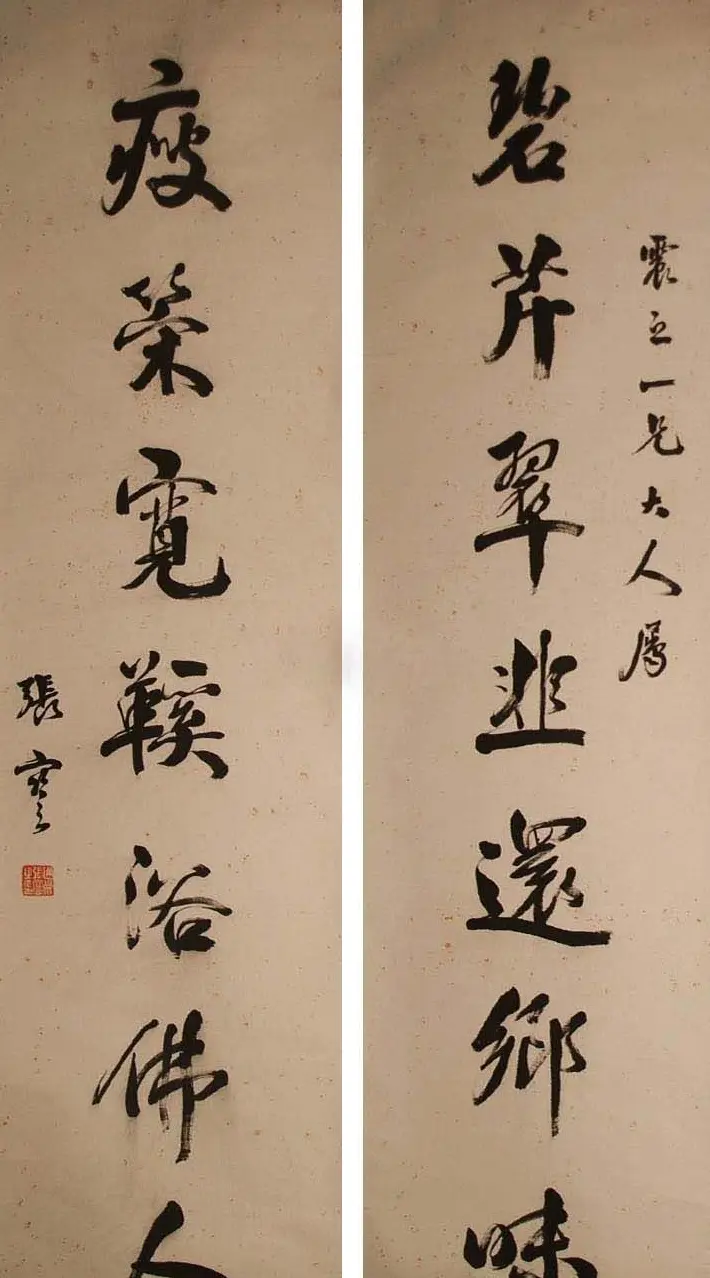 震之一兄大人屬
碧芹翠韭還鄉味
瘦策寬鞵浴佛人
張謇